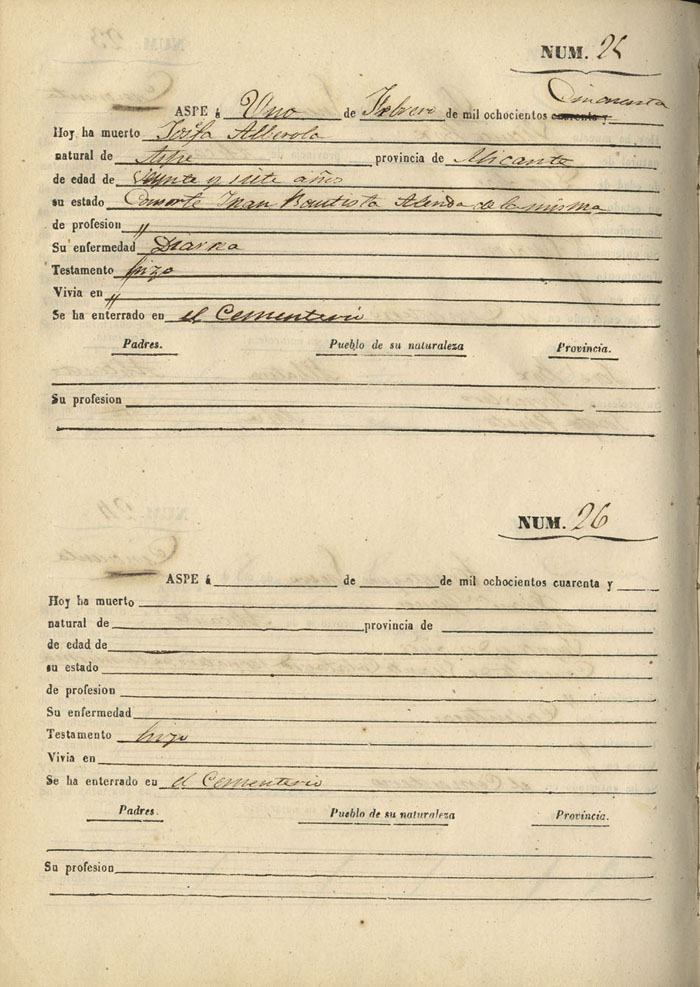 NUM. 25
Cincuenta
ASPE á Uno de Febrero de mil ochocientos cuarenta y
Hoy ha muerto Josefa Alberola
natural de Aspe provincia de Alicante
de edad de veynte y siete año
su estado Consorte Juan Bautista Alenda de la misma
de profesion "
Su enfermedad Diarrea
Testamento hizo
Vivia en "
Se ha enterrado en el Cementerio
Padres. Pueblo de su naturaleza Provincia.
Su profesion
NUM. 26
ASPE á de de mil ochocientos cuarenta y
Hoy ha muerto
natural de provincia de
de edad de
su estado
de profesion
Su enfermedad
Testamento hizo
Vivia en
Se ha enterrado en el Cementerio
Padres. Pueblo de su naturaleza Provincia.
Su profesion